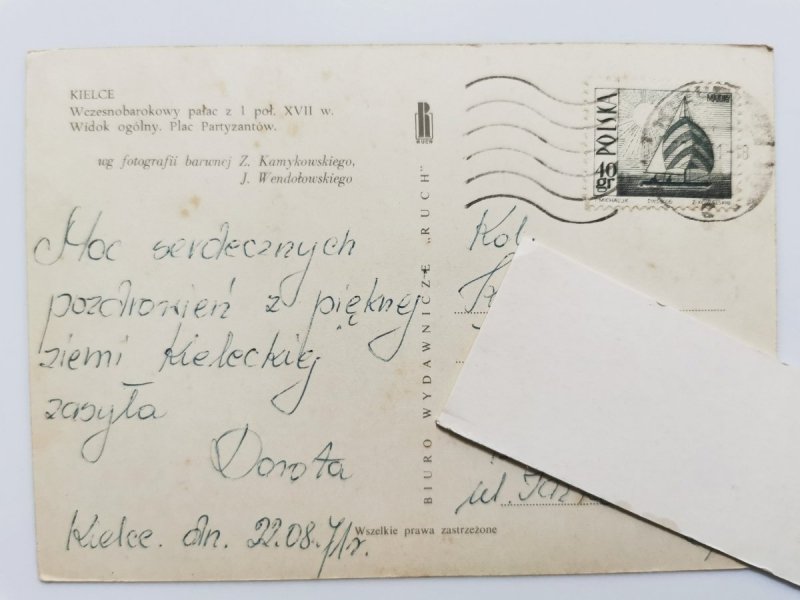 KIELCE
Wczesnobarokowy pałac z 1 poł. XVII w.
Widok ogólny. Plac Partyzantów.
wg fotografii barwnej Z. Kamykowskiego,
J. Wendołowskiego
Moc serdecznych
pozdrowień z pięknej
ziemi Kieleckiej
zasyła
Dorota
Kielce. dn. 22.08.71r.
Wszelkie prawa zastrzeżone
RUCH
BIURO WYDAWNICZE „RUCH"
POLSKA
40 gr
Kol.
ul.